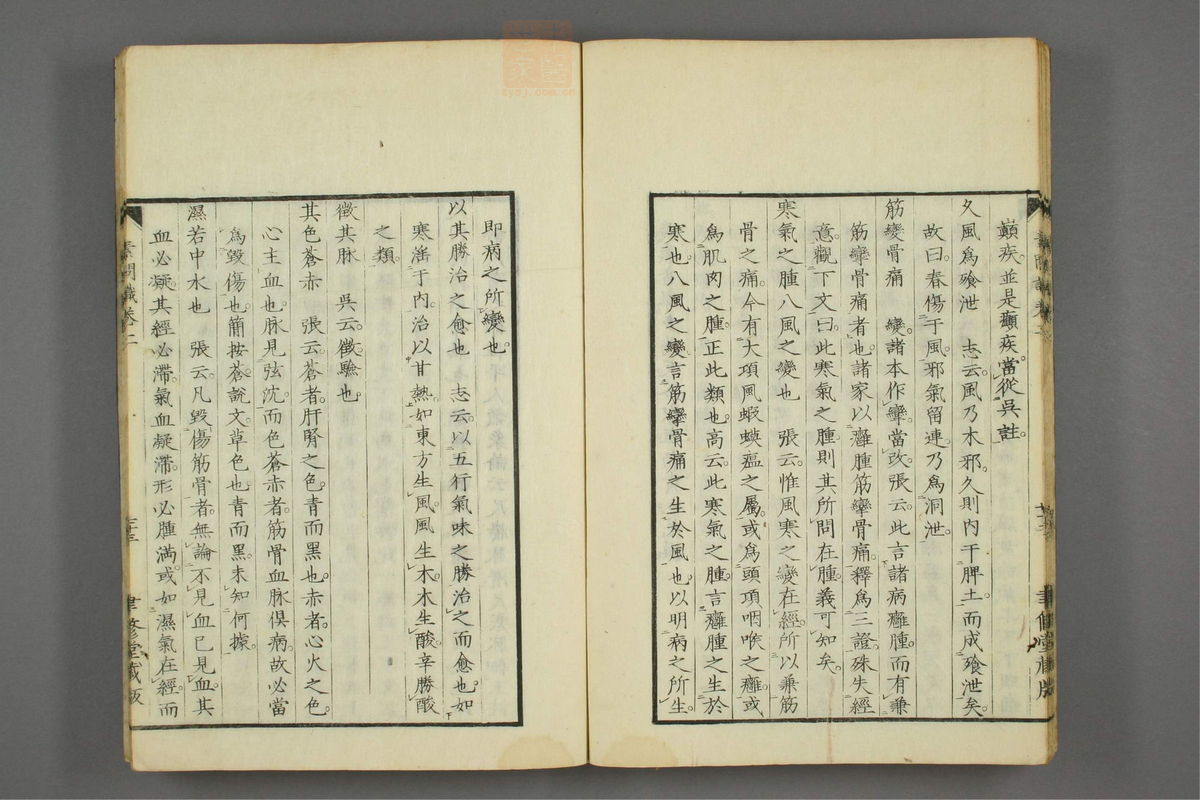 巓疾並是癲疾當從吳註
久風爲飱泄　志云風乃木邪久則內干脾土而成飱泄矣
故曰春傷于風邪氣留連乃爲洞泄
筋變骨痛　變諸本作攣當改張云此言諸病癰腫而有兼
筋攣骨痛者也諸家以癰腫筋攣骨痛釋爲三證殊失經
意觀下文曰此寒氣之腫則其所問在腫義可知矣
寒氣之腫八風之變也　張云惟風寒之變在經所以兼筋
骨之痛今有大項風蝦蟆瘟之屬或爲頭項咽喉之癰或
爲肌肉之腫正此類也高云此寒氣之腫言癰腫之生於
寒也八風之變言筋攣骨痛之生於風也以明病之所生
即病之所變也
以其勝治之愈也　志云以五行氣味之勝治之而愈也如
寒淫于內治以甘熱如東方生風風生木木生酸辛勝酸
之類
徵其脉　吳云徵驗也
其色蒼赤　張云蒼者肝腎之色青而黑也赤者心火之色
心主血也脉見弦沈而色蒼赤者筋骨血脉俱病故必當
爲毀傷也簡按蒼說文草色也青而黑未知何據
濕若中水也　張云凡毀傷筋骨者無論不見血已見血其
血必凝其經必滯氣血凝滯形必腫滿或如濕氣在經而
素問識卷二
聿修堂藏版